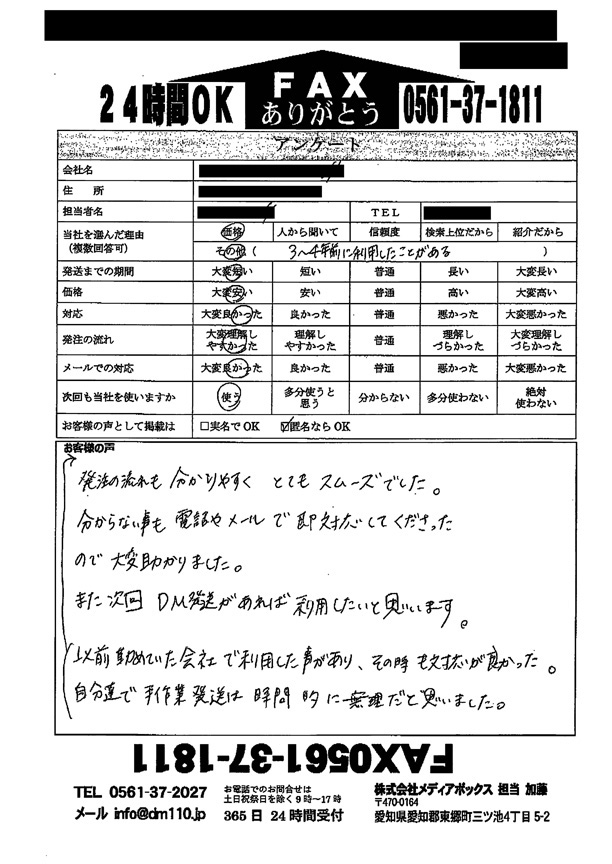 24時間OK
FAX
ありがとう
0561-37-1811
アンケート
会社名
住 所
担当者名 TEL
当社を選んだ理由 (複数回答可) 価格 人から聞いて 信頼度 検索上位だから 紹介だから
その他 ( 3〜4年前に利用したことがある )
発送までの期間 大変短い 短い 普通 長い 大変長い
価格 大変安い 安い 普通 高い 大変高い
対応 大変良かった 良かった 普通 悪かった 大変悪かった
発注の流れ 大変理解しやすかった 理解しやすかった 普通 理解しづらかった 大変理解しづらかった
メールでの対応 大変良かった 良かった 普通 悪かった 大変悪かった
次回も当社を使いますか 使う 多分使うと思う 分からない 多分使わない 絶対使わない
お客様の声として掲載は □実名でOK ☑匿名ならOK
お客様の声
発注の流れも 分かりやすく とても スムーズでした。
分からない事も 電話やメールで 即対応してくださった
ので 大変助かりました。
また次回 DM発送があれば 利用したいと思います。
以前勤めていた会社で利用した事があり、その時も対応が良かった。
自分達で手作業発送は 時間的に無理だと思いました。
FAX0561-37-1811
TEL 0561-37-2027
メール info@dm110.jp
お電話でのお問合せは
土日祝祭日を除く9時〜17時
365日24時間受付
株式会社メディアボックス 担当 加藤
〒470-0164
愛知県愛知郡東郷町三ツ池4丁目5-2